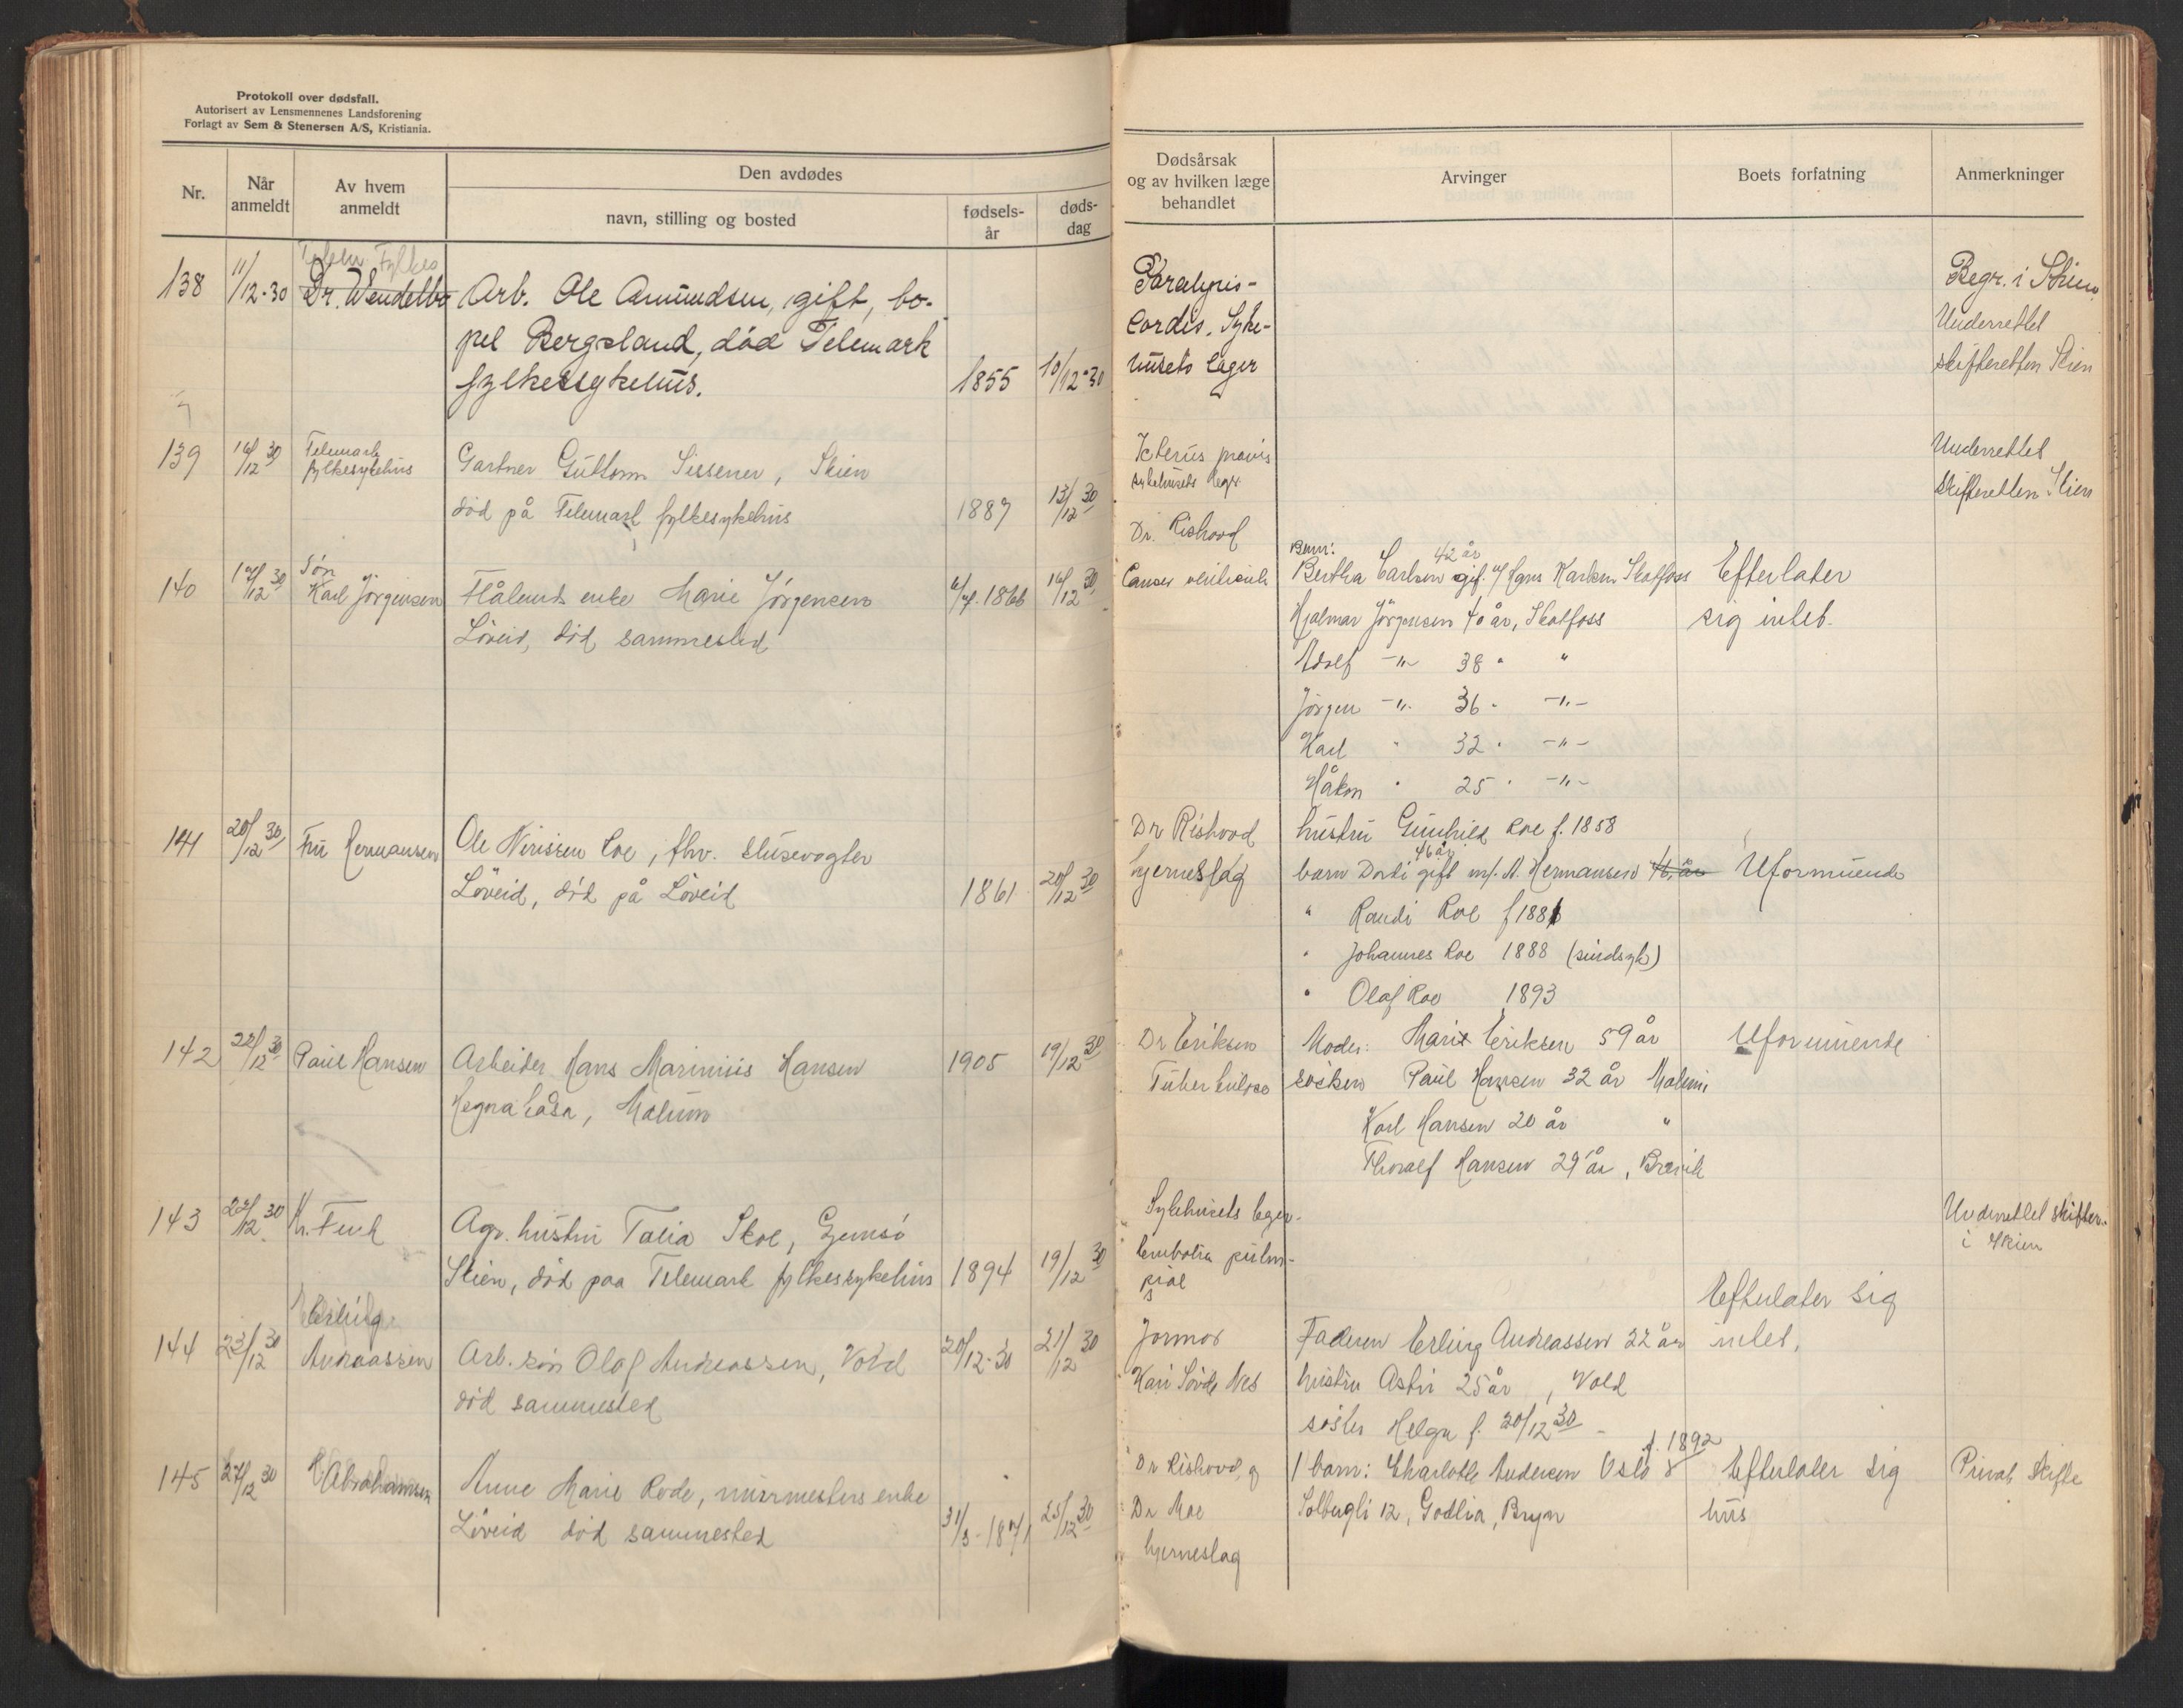 Protokoll over dødsfall.
Autorisert av Lensmennenes Landsforening
Forlagt av Sem & Stenersen A/S, Kristiania.
Nr.
Når anmeldt
Av hvem anmeldt
Den avdødes
navn, stilling og bosted
fødsels-år
døds-dag
Dødsårsak og av hvilken læge behandlet
Arvinger
Boets forfatning
Anmerkninger
138 11/12-30 Telem. Fylkes
Dr. Wendelbo Arb. Ole Amundsen, gift, bo-
pel Bergsland, død Telemark
fylkessykehus. 1855 10/12-30
Paralysis-
Cordis. Syke-
husets læger
Begr. i Skien
Underrettet
skifteretten Skien
139 16/12 30 Telemark
fylkesykehus
Gartner Guttorm Sissener, Skien
død på Telemark fylkesykehus 1887 13/12 30
Icterus
sykehusets læger
Underrettet
Skifteretten Skien
140 17/12 30 Søn
Karl Jørgensen Flåmands enke Marie Jørgensen 6/4.1866 16/12 30
Løveid, død sammested
Dr. Rishovd
Cancer ventriculi
Barn:
Bertha Carlsen 42 år gif. m/ Hans Karlsen Skotfoss
Hjalmar Jörgensen 40 år, Skotfoss
Adolf -"- 38 " "
Jörgen -"- 36 " -"-
Karl " 32 " -"-
Håkon " 25 " -"-
Efterlater
sig intet.
141 20/12 30 Fru Hermansen Ole Nirissen Roe, fhv. slusevogter
Löveid, död på Löveid 1861 20/12 30
Dr Rishovd
hjerneslag
hustru Gunhild Roe f. 1858
barn Dordi 46 år gift m/. N. Hermansen 46 år
" Randi Roe f 1886
" Johannes Roe 1888 (sindsyk)
" Olaf Roe 1893
Uformuende
142 22/12 30 Paul Hansen Arbeider Hans Marinius Hansen 1905 19/12 30
Hegna , Solum
Dr Eriksen
Tuberkulose
Moder: Marie Eriksen 59 år
søsken Paul Hansen 32 år Solum
Karl Hansen 20 år "
Thoralf Hansen 29 år, Brevik
Uformuende
143 22/12 30
Agr. hustru Talia Skoe, Gjemsø
Skien, död paa Telemark fylkessykehus 1894 19/12 30
Sykehusets læger.
Embolia pulm-
Underrettet skifter.
i Skien
144 23/12 30 Erling
Andreassen Arb. søn Olaf Andreassen, Vold 20/12-30 21/12 30
død sammested
Jormor
Kari Sövde Nes
Faderen Erling Andreassen 22 år
hustru Astri 25 år, Vold
söster Helga f. 20/12 30
Efterlater sig
intet.
145 27/12 30 Abrahamsen
Anne Marie Rode, murmesters enke
Löveid död sammested 31/3-1871 25/12 30
Dr Rishovd, og
Dr Moe
hjerneslag
1 barn: Charlotte Andersen Oslo f. 1892
Solbugli 12, Godlia, Bryn
Efterlater sig
hus
Privat skifte